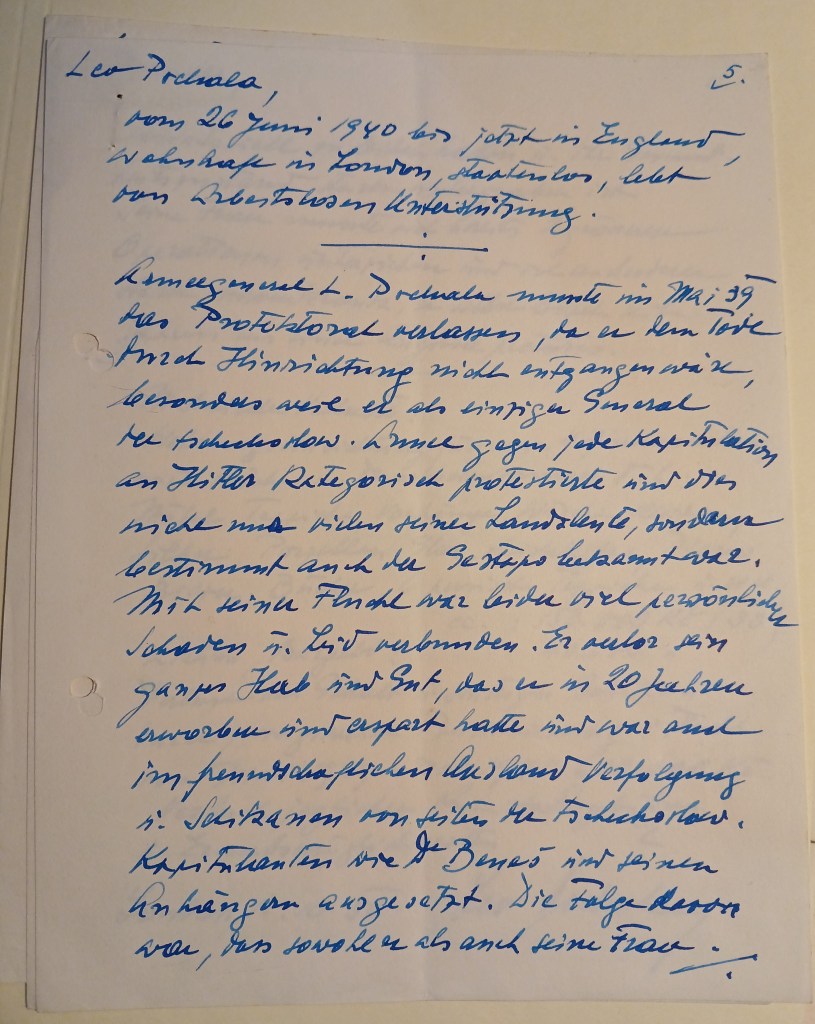 5.
Leo Prchala,
vom 26 Juni 1940 bis jetzt in England,
wohnhaft in London, staatenlos, lebt
von Arbeitslosen Unterstützung.
Armeegeneral L. Prchala musste im Mai 39
das Protektorat verlassen, da er dem Tode
durch Hinrichtung nicht entgangen wäre,
besonders weil er als einziger General
der tschechoslow. Armee gegen jede Kapitulation
an Hitler kategorisch protestierte und dies
nicht nur vielen seiner Landsleute, sondern
bestimmt auch der Gestapo bekannt war.
Mit seiner Flucht war leider viel persönlicher
Schaden u. Leid verbunden. Er verlor sein
ganzes Hab und Gut, das er in 20 Jahren
erworben und erspart hatte und war auch
im freundschaftlichen Ausland Verfolgung
u. Schikanen von seiten der tschechoslow.
Kapitulanten wie Dr Beneš und seinen
Anhängern ausgesetzt. Die Folge davon
war, dass sowohl er als auch seine Frau